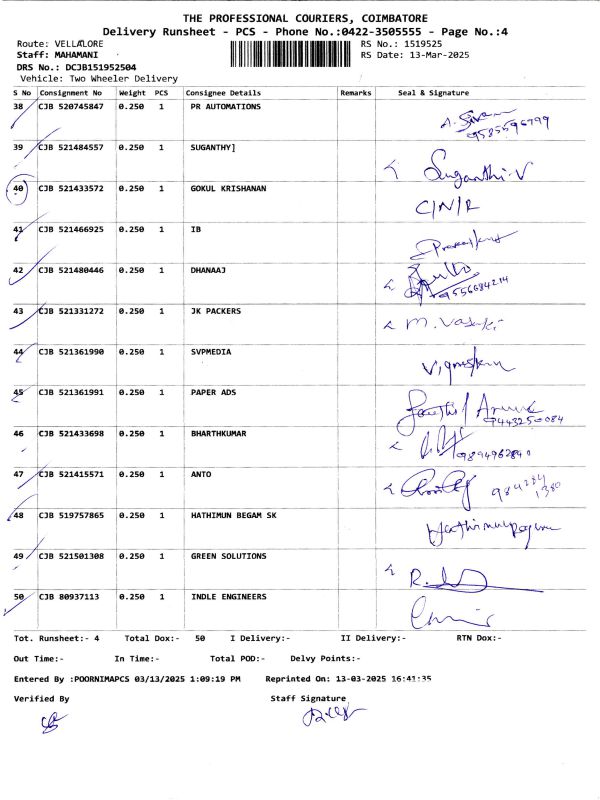 THE PROFESSIONAL COURIERS, COIMBATORE
Delivery Runsheet - PCS - Phone No.:0422-3505555 - Page No.:4
Route: VELLALORE RS No.: 1519525
Staff: MAHAMANI RS Date: 13-Mar-2025
DRS No.: DCJB151952504
Vehicle: Two Wheeler Delivery
S No Consignment No Weight PCS Consignee Details Remarks Seal & Signature
38 CJB 520745847 0.250 1 PR AUTOMATIONS
9585596799
39 CJB 521484557 0.250 1 SUGANTHY] Suganthi.V
40 CJB 521433572 0.250 1 GOKUL KRISHANAN C/N/R
41 CJB 521466925 0.250 1 IB
42 CJB 521480446 0.250 1 DHANAAJ
9556684214
43 CJB 521331272 0.250 1 JK PACKERS
44 CJB 521361990 0.250 1 SVPMEDIA
45 CJB 521361991 0.250 1 PAPER ADS
9443250084
46 CJB 521433698 0.250 1 BHARTHKUMAR
9894962840
47 CJB 521415571 0.250 1 ANTO
984284
1380
48 CJB 519757865 0.250 1 HATHIMUN BEGAM SK
49 CJB 521501308 0.250 1 GREEN SOLUTIONS
50 CJB 80937113 0.250 1 INDLE ENGINEERS
Tot. Runsheet:- 4 Total Dox:- 50 I Delivery:- II Delivery:- RTN Dox:-
Out Time:- In Time:- Total POD:- Delvy Points:-
Entered By :POORNIMAPCS 03/13/2025 1:09:19 PM Reprinted On: 13-03-2025 16:41:35
Verified By Staff Signature